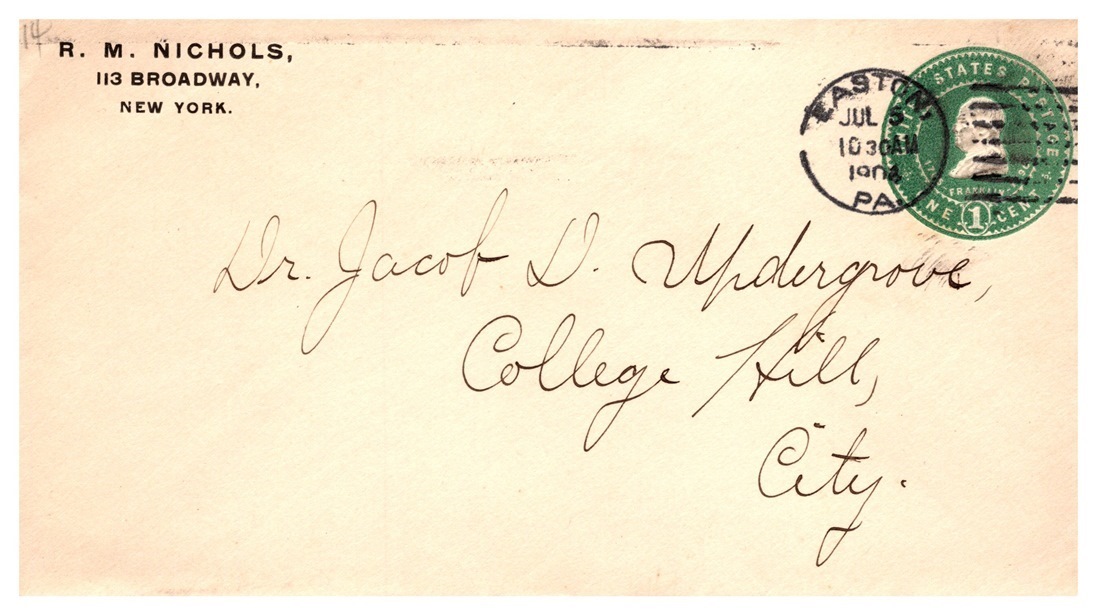 14
R. M. NICHOLS,
113 BROADWAY,
NEW YORK.
EASTON,
JUL 3
10 30 AM
1903
PA
STATES POSTAGE
FRANKLIN
ONE 1 CENT
Dr. Jacob D. Updergrove,
College Hill,
City.